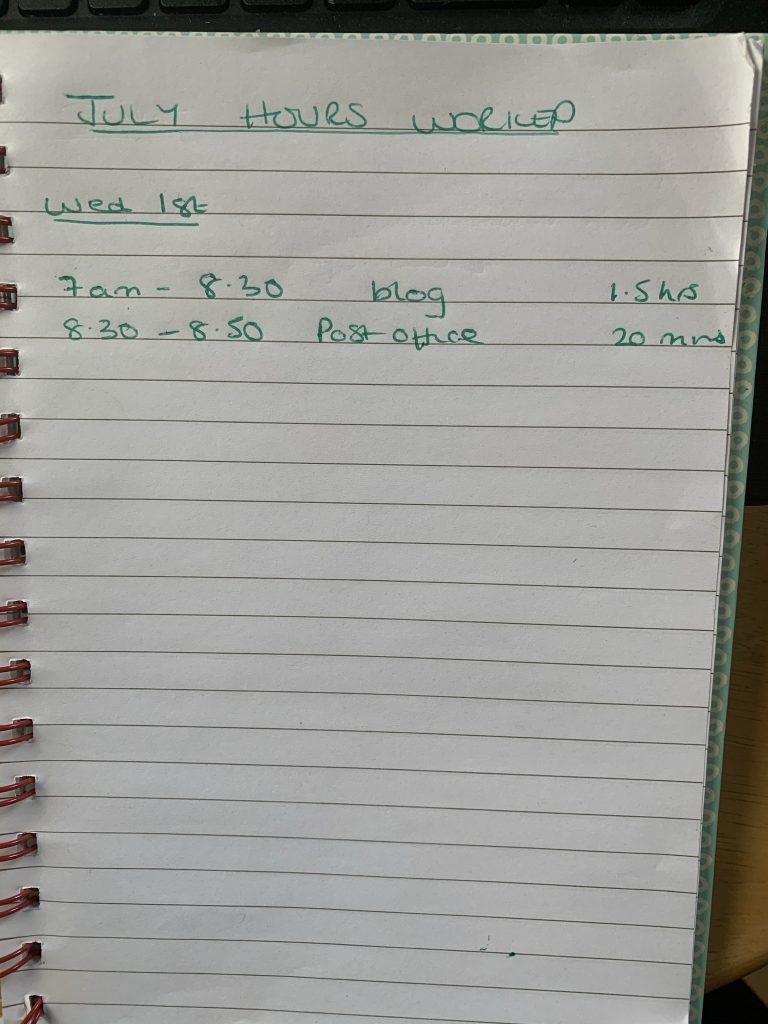 JULY HOURS WORKED
Wed 1st
7am - 8.30 blog 1.5 hrs
8.30 - 8.50 Post office 20 mins